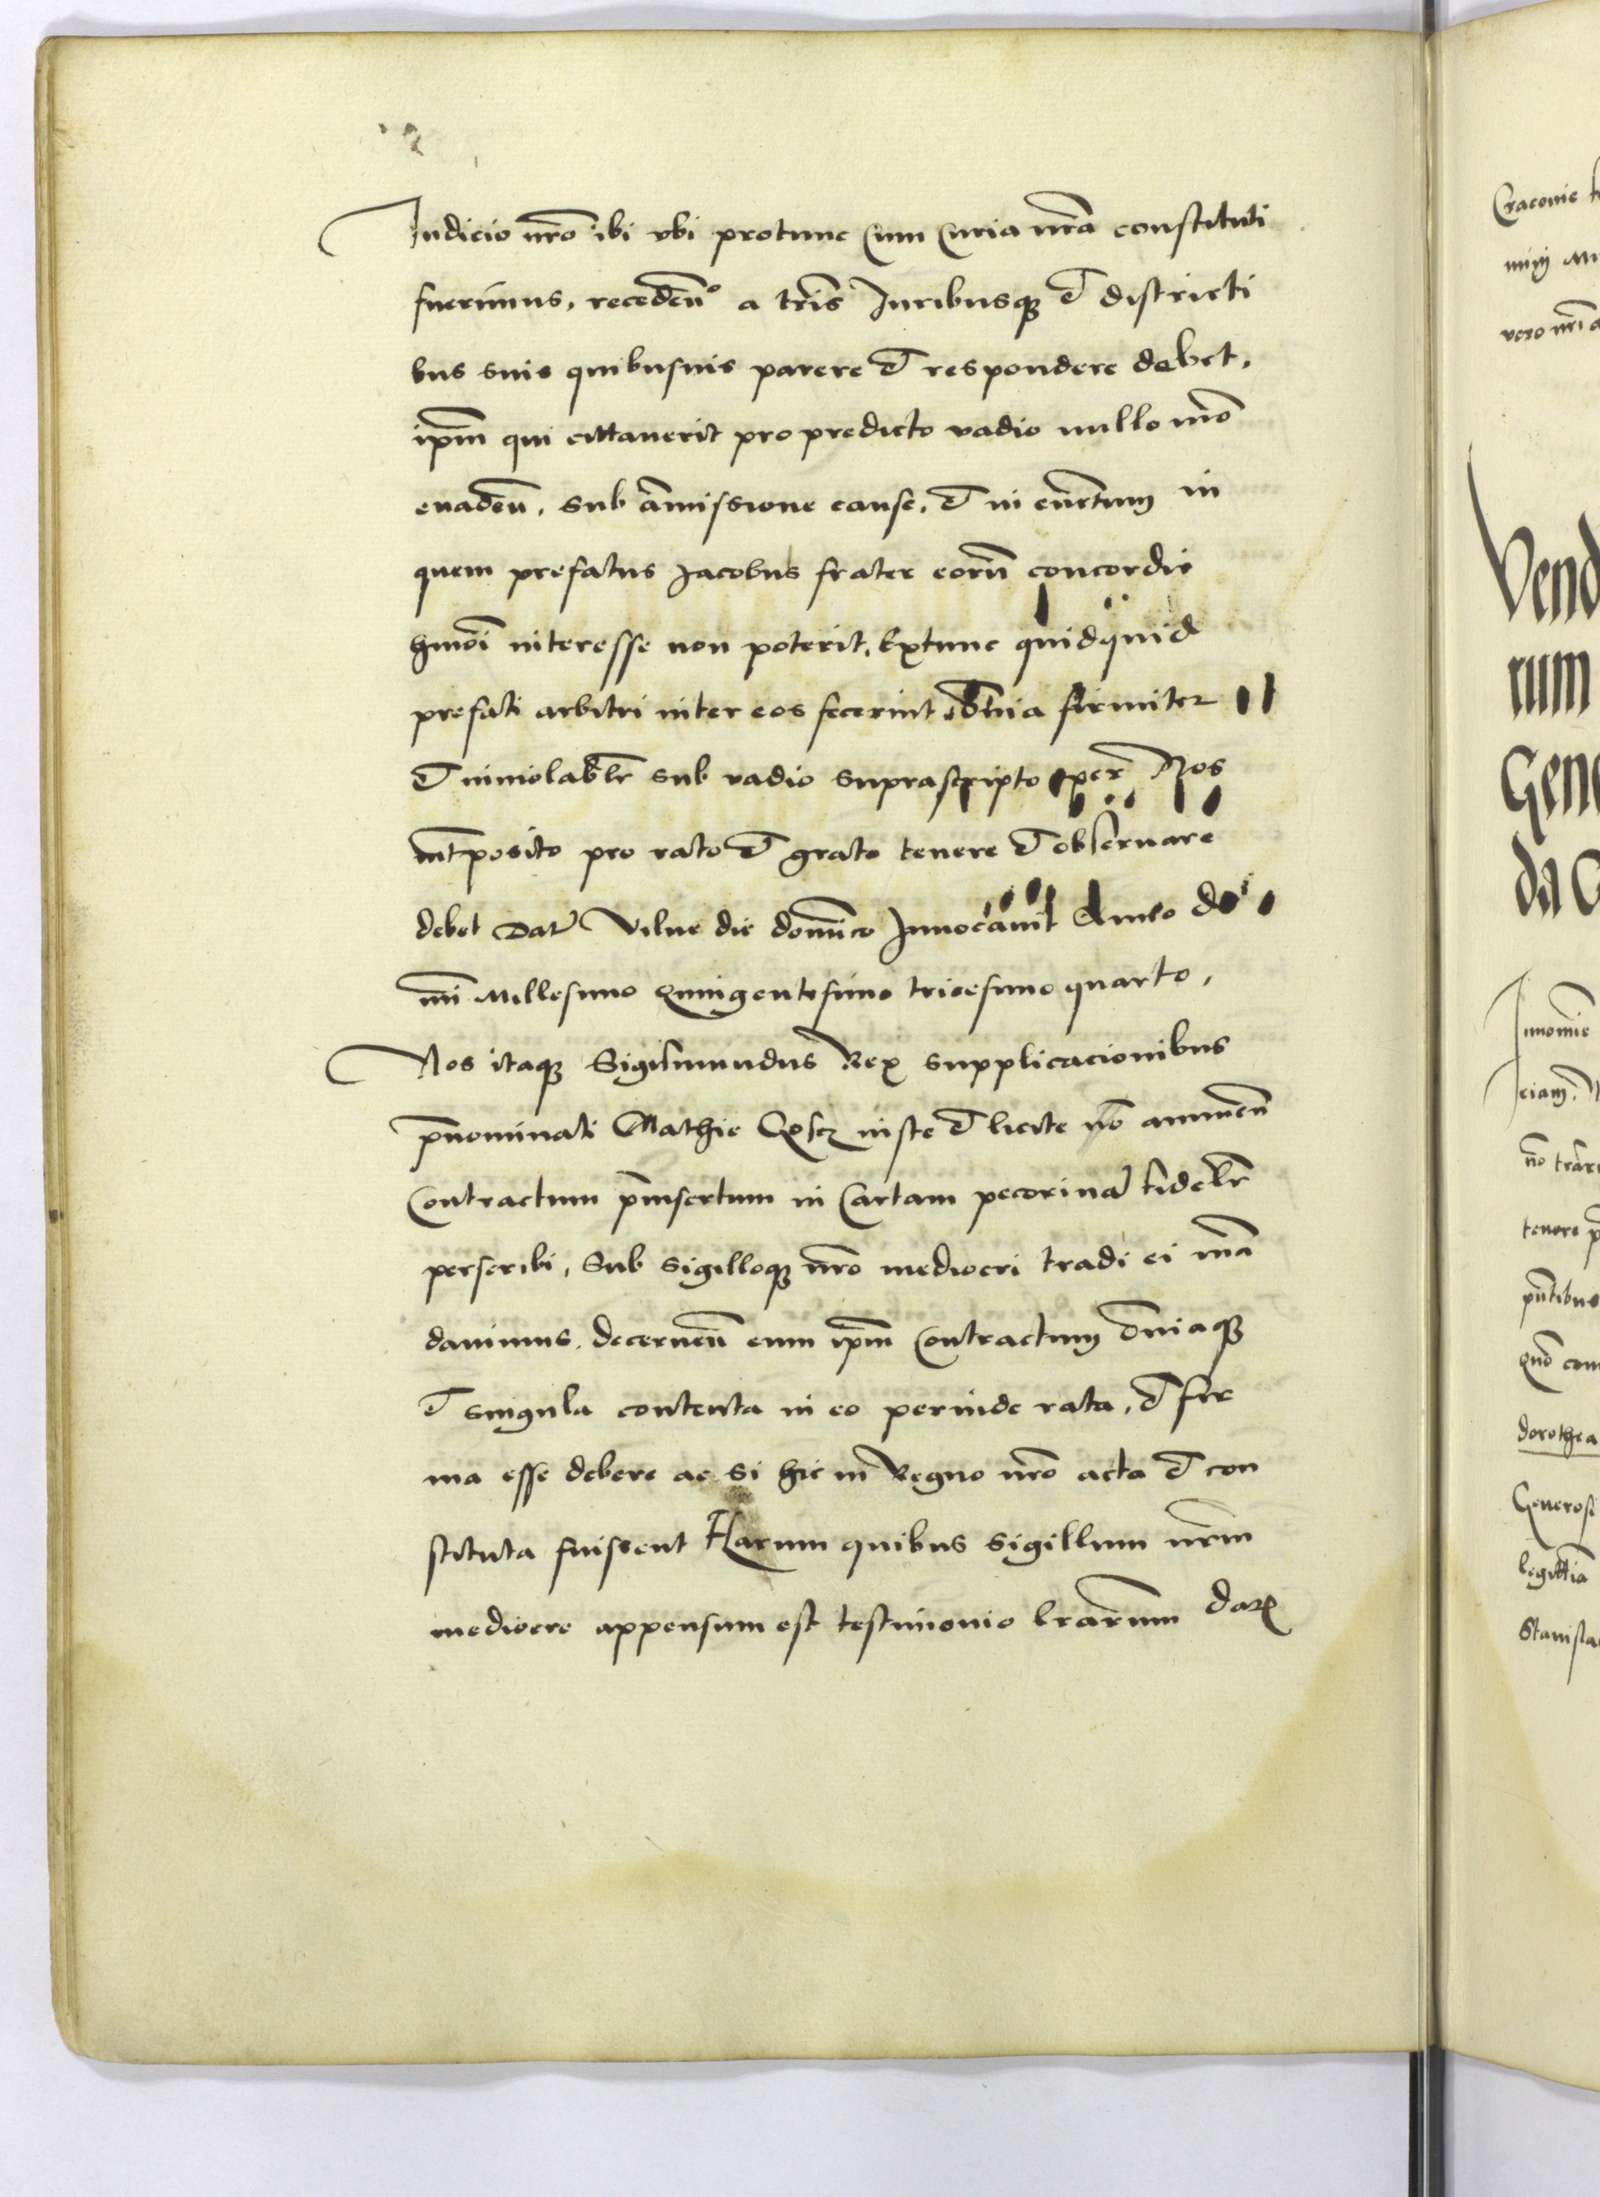 Iudicio nr̃o ibi vbi protunc Cum Curia nr̃a constituti
fuerimus, recedeñ a tr̃is Juribusq̧ et districti
bus suis quibusuis parere et respondere debet,
ip̃m qui cittauerit pro predicto vadio nullo mõ
euadeñ, sub amissione cause, et in euẽtum in
quem prefatus Jacobus frater eorũ concordie
hmõi interesse non poterit, Extunc quidquid
prefati arbitri inter eos fecerint om̃ia firmiter
et inuiolabl̃r sub vadio suprascripto per Nos
int̃posito pro rato et grato tenere et obseruare
debet Dat̃ Vilne die dom̃ico Inuocauit Anno do
mi Millesimo Quingentesimo tricesimo quarto,
Nos itaq̧ Sigismundus Rex supplicacionibus
p̃nominati Mathie iuste et licite annueñ
Contractum p̃insertum in Cartam pecorinã fidel̃r
perscribi, Sub sigilloq̧ nr̃o mediocri tradi ei mã
dauimus, decerneñ eum ip̃m Contractum om̃iaq̧
et singula contenta in eo perinde rata, et fir
ma esse debere ac si hic in Regno nr̃o acta et con
stituta fuissent Harum quibus sigillum nr̃m
mediocre appensum est testimonio lr̃arum Dat̃
Craconie
vero nr̃i
Vend
rum
Gene
da
tenore
dorothea
Generosi
Stanisla